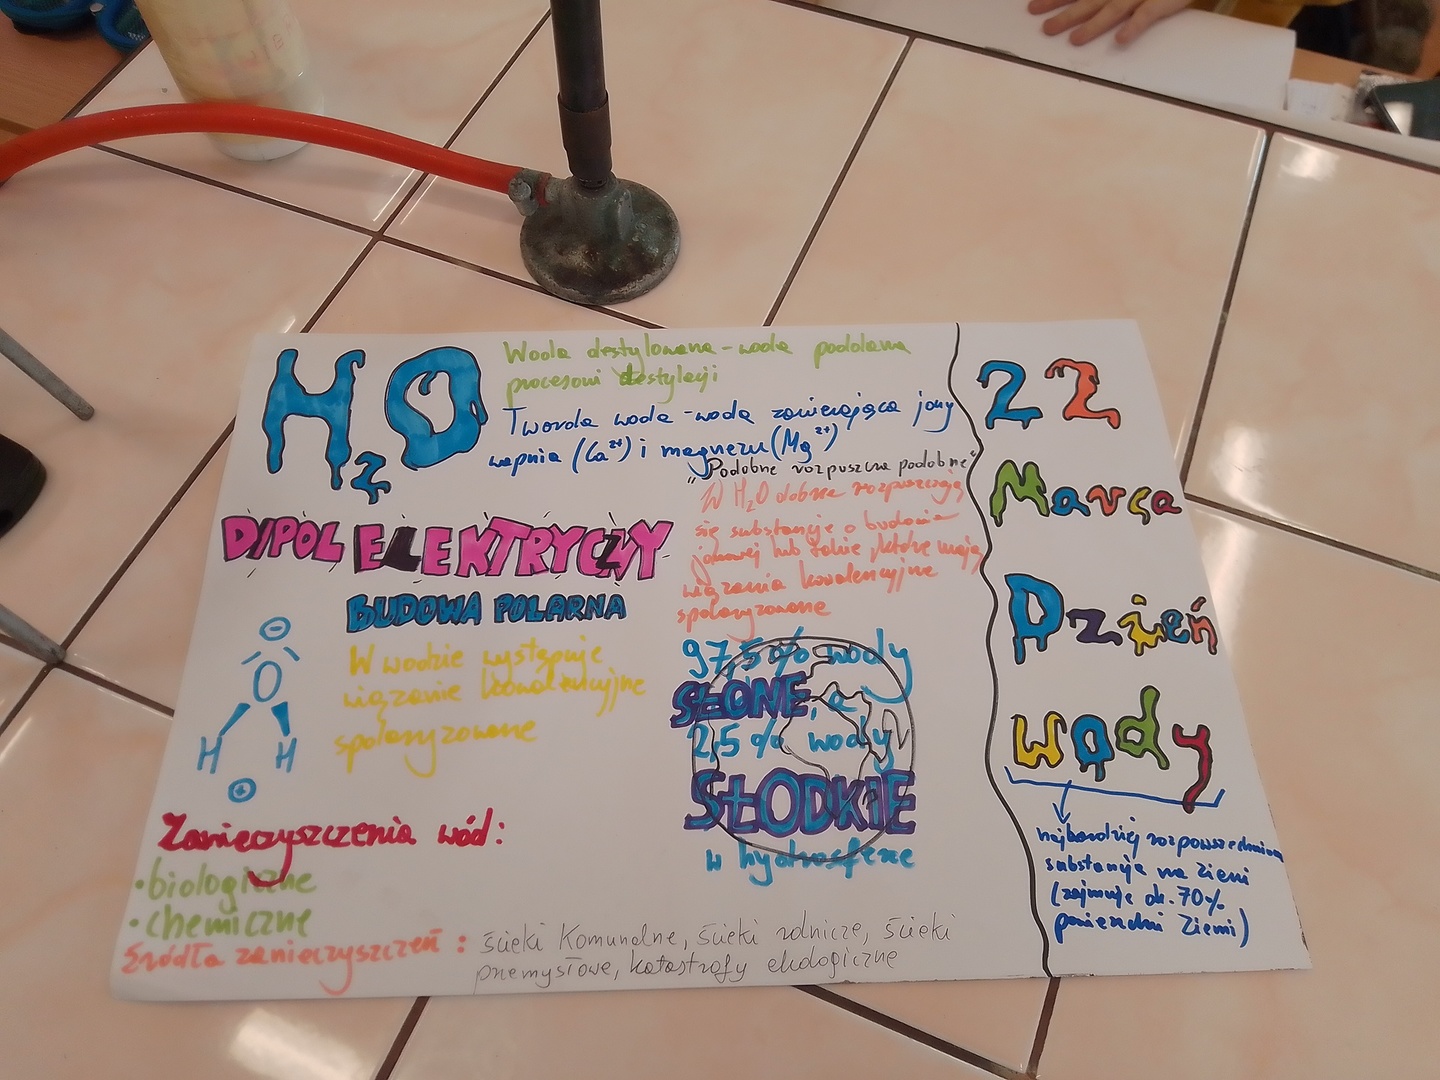 H₂O
Woda destylowana - woda poddana
procesowi destylacji
Twarda woda - woda zawierająca jony
wapnia (Ca²⁺) i magnezu (Mg²⁺)
"Podobne rozpuszcza podobne"
W H₂O dobrze rozpuszczają
się substancje o budowie
jonowej lub takie, które mają
wiązania kowalencyjne
spolaryzowane
DIPOL ELEKTRYCZNY
BUDOWA POLARNA
W wodzie występuje
wiązanie kowalencyjne
spolaryzowane
-
O
H H
+
97,5% wody
SŁONE, a
2,5% wody
SŁODKIE
w hydrosferze
Zanieczyszczenia wód:
•biologiczne
•chemiczne
Źródła zanieczyszczeń: ścieki komunalne, ścieki rolnicze, ścieki
przemysłowe, katastrofy ekologiczne
22
Marca
Dzień
wody
najbardziej rozpowszechniona
substancja na Ziemi
(zajmuje ok. 70%
powierzchni Ziemi)